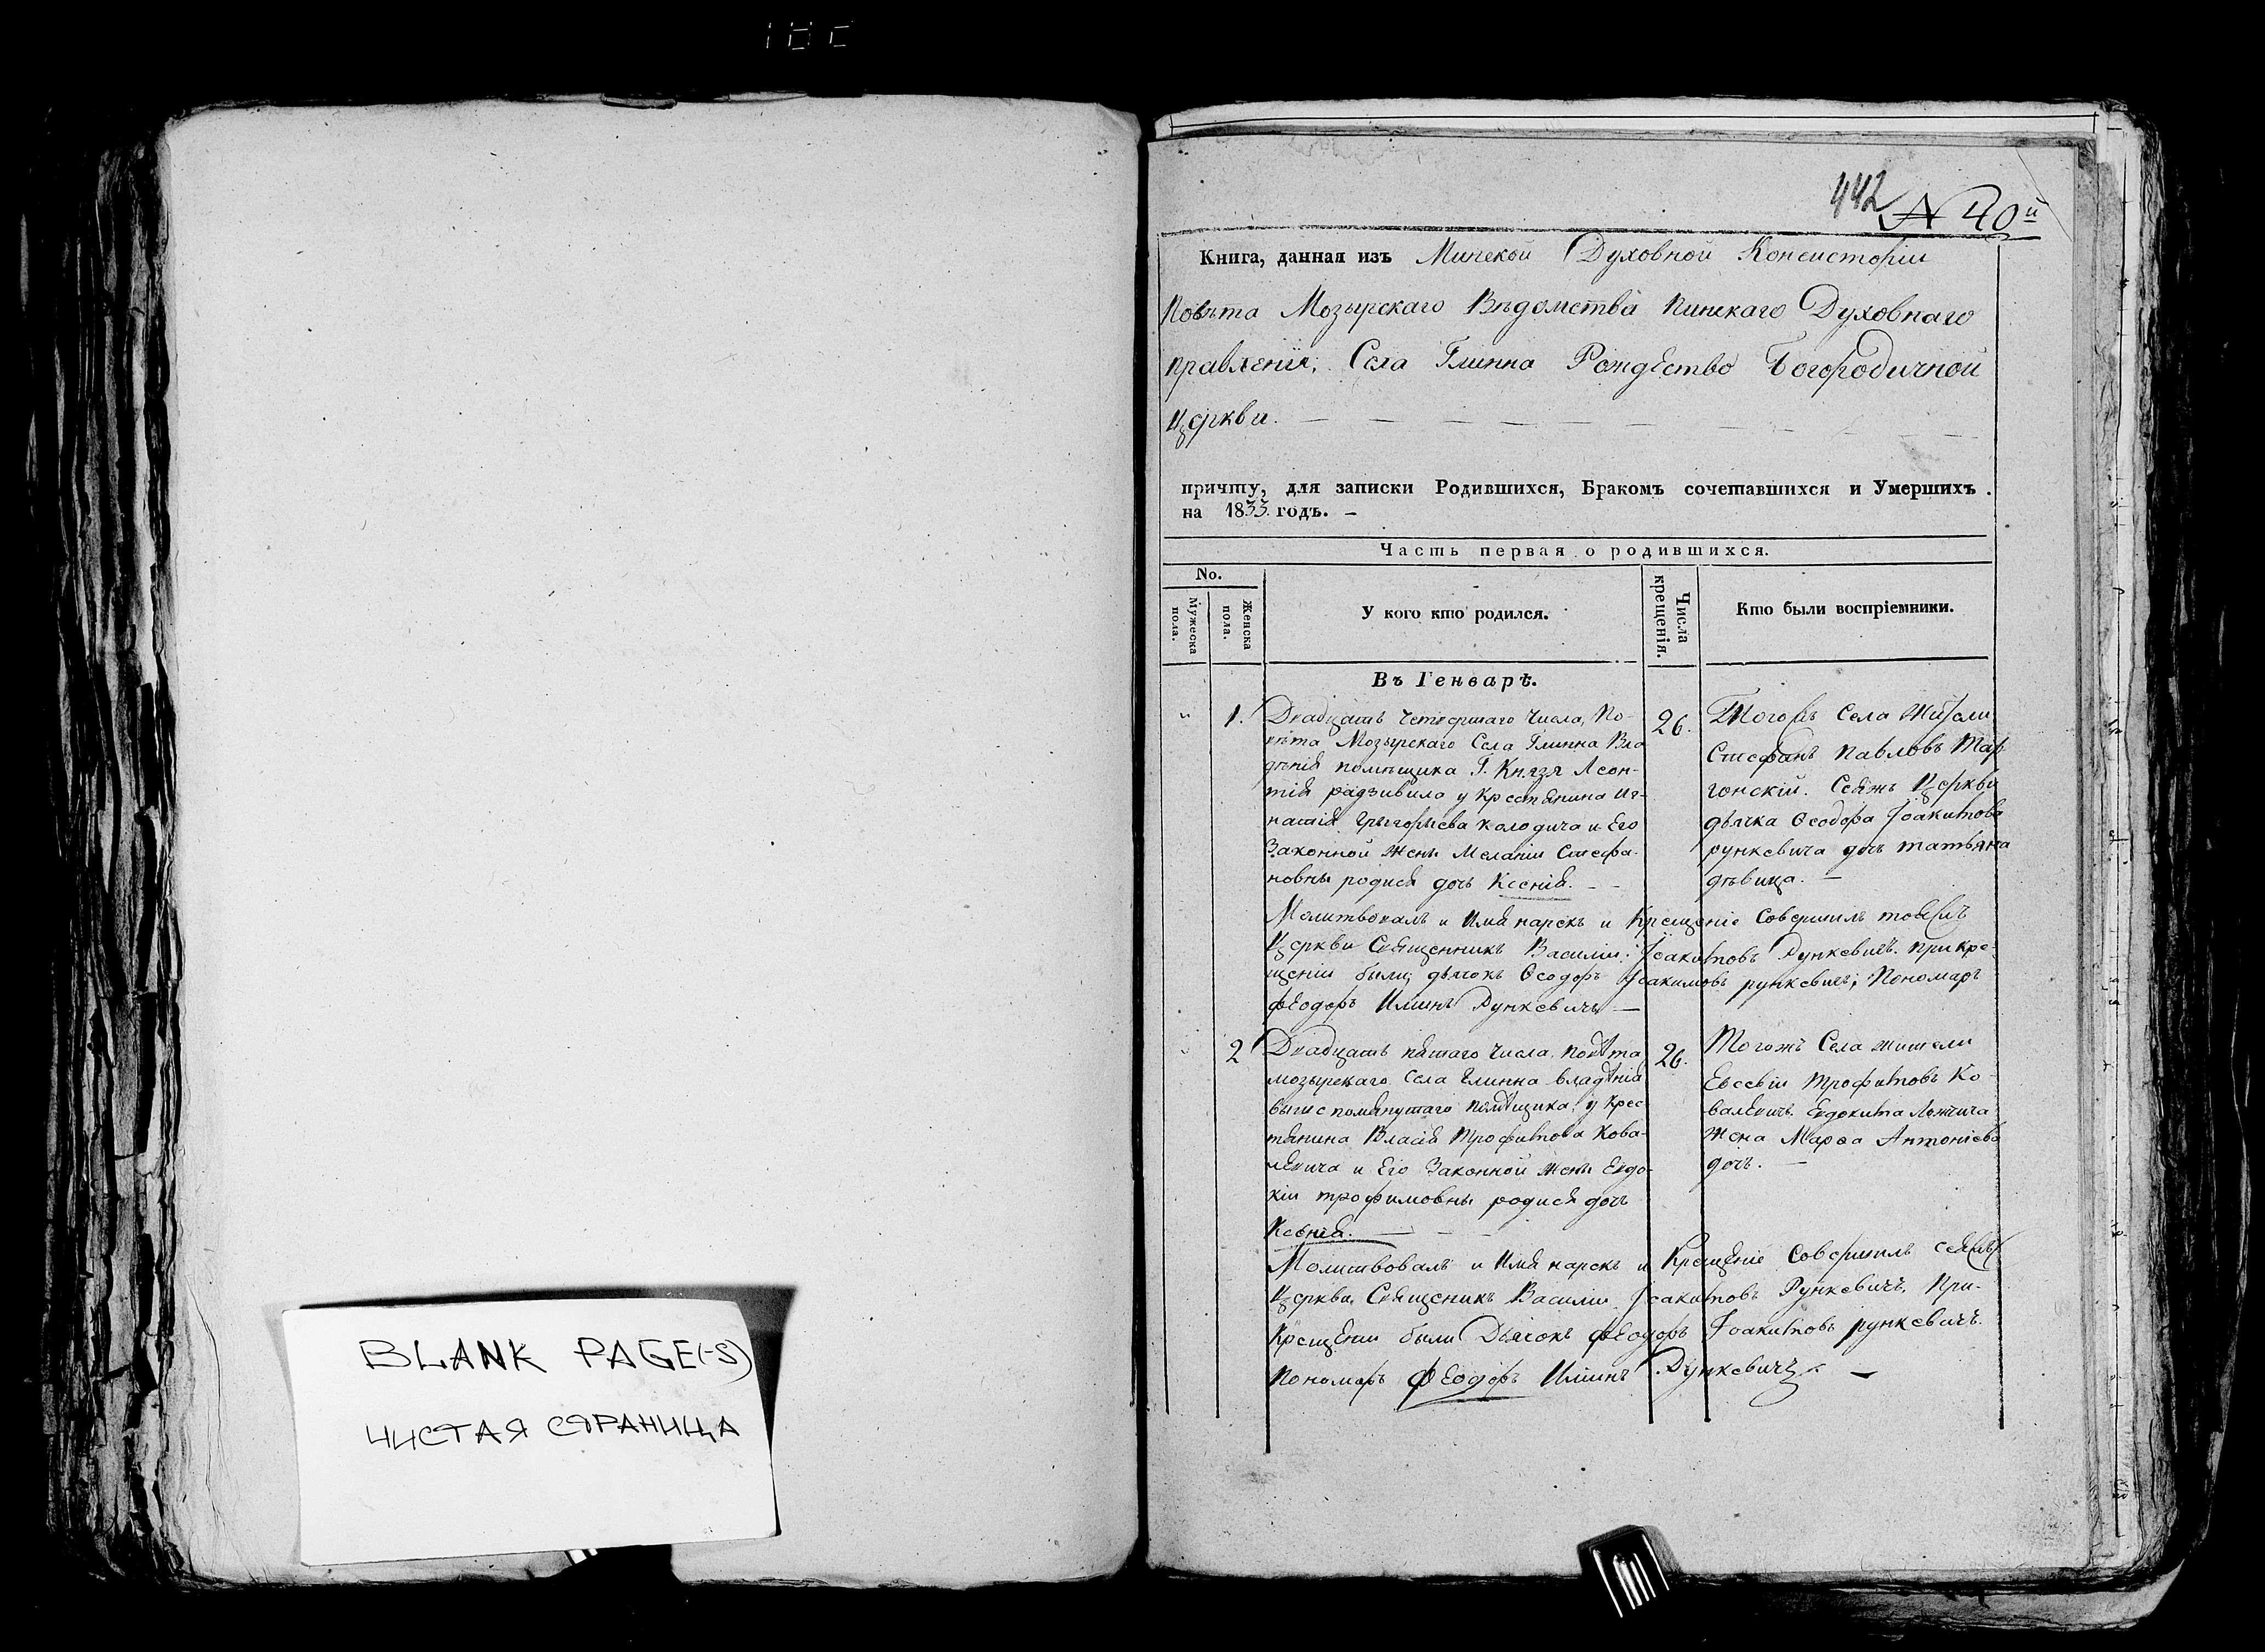 442 N 40й
Книга, данная изъ Минской Духовной Консисторіи
Повѣта Мозырскаго Вѣдомства Пинскаго Духовнаго
правленія, Села Глинна Рождество Богородичной
Церкви.
причту, для записки Родившихся, Бракомъ сочетавшихся и Умершихъ.
на 1833 годъ.
Часть первая о родившихся.
No.
Мужеска пола.
Женска пола.
У кого кто родился.
Числа крещенія.
Кто были воспріемники.
Въ Генварѣ.
1.
Двадцать четвертаго числа, По-
вѣта Мозырскаго Села Глинна Вла
дѣнія помѣщика Г. Князя Леон-
тія радзивила у крестянина Иг-
натія Григорьева колодича и Его
Законной жены Меланіи Стефа-
новны родися дочь Ксенія.
26.
Тогожъ Села жители
Стефанъ Павловъ Мар
гонскій. Сеяжъ Церкви
дьячка Ѳеодора Іоакимова
рункевича дочь татьяна
дѣвица.
Молитвовалъ и Имя нарекъ и Крещеніе Совершилъ тояжъ
Церкви Священникъ Василіи Іоакимовъ Рункевичъ. при кре-
щеніи были; дьячокъ Ѳеодоръ Іоакимовъ рункевичъ; Пономарь
феодоръ Илиинъ Рункевичъ
2
Двадцать пятаго числа. повѣта
мозырскаго села глинна владѣнія
вышспомянутаго помѣщика, у крес
тянина Власія Трофимова Кова-
левича и Его Законной жены Евдо-
кіи трофимовны родися дочь
Ксенія.
26.
Тогожъ Села жители
Евсевіи Трофимовъ Ко-
валевичъ. Евдокима
жена Марѳа Антоніева
дочь.
Молитвовалъ и Имя нарекъ и Крещеніе Совершилъ сеяжъ
Церкви Священикъ Василіи Іоакимовъ Рункевичъ. При-
Крещеніи были Дьячокъ феодоръ Іоакимовъ рункевичъ.
Пономарь Феодоръ Илиинъ Рункевичъ
BLANK PAGE(-S)
ЧИСТАЯ СТРАНИЦА